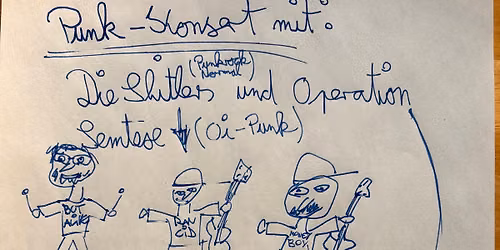 Punk-Konsert mit:
(Punkrock
Normal)
Die Shitlers und Operation
Semtex (Oi-Punk)
BUT
ALIVE
RAN
CID
MONEY
BOY